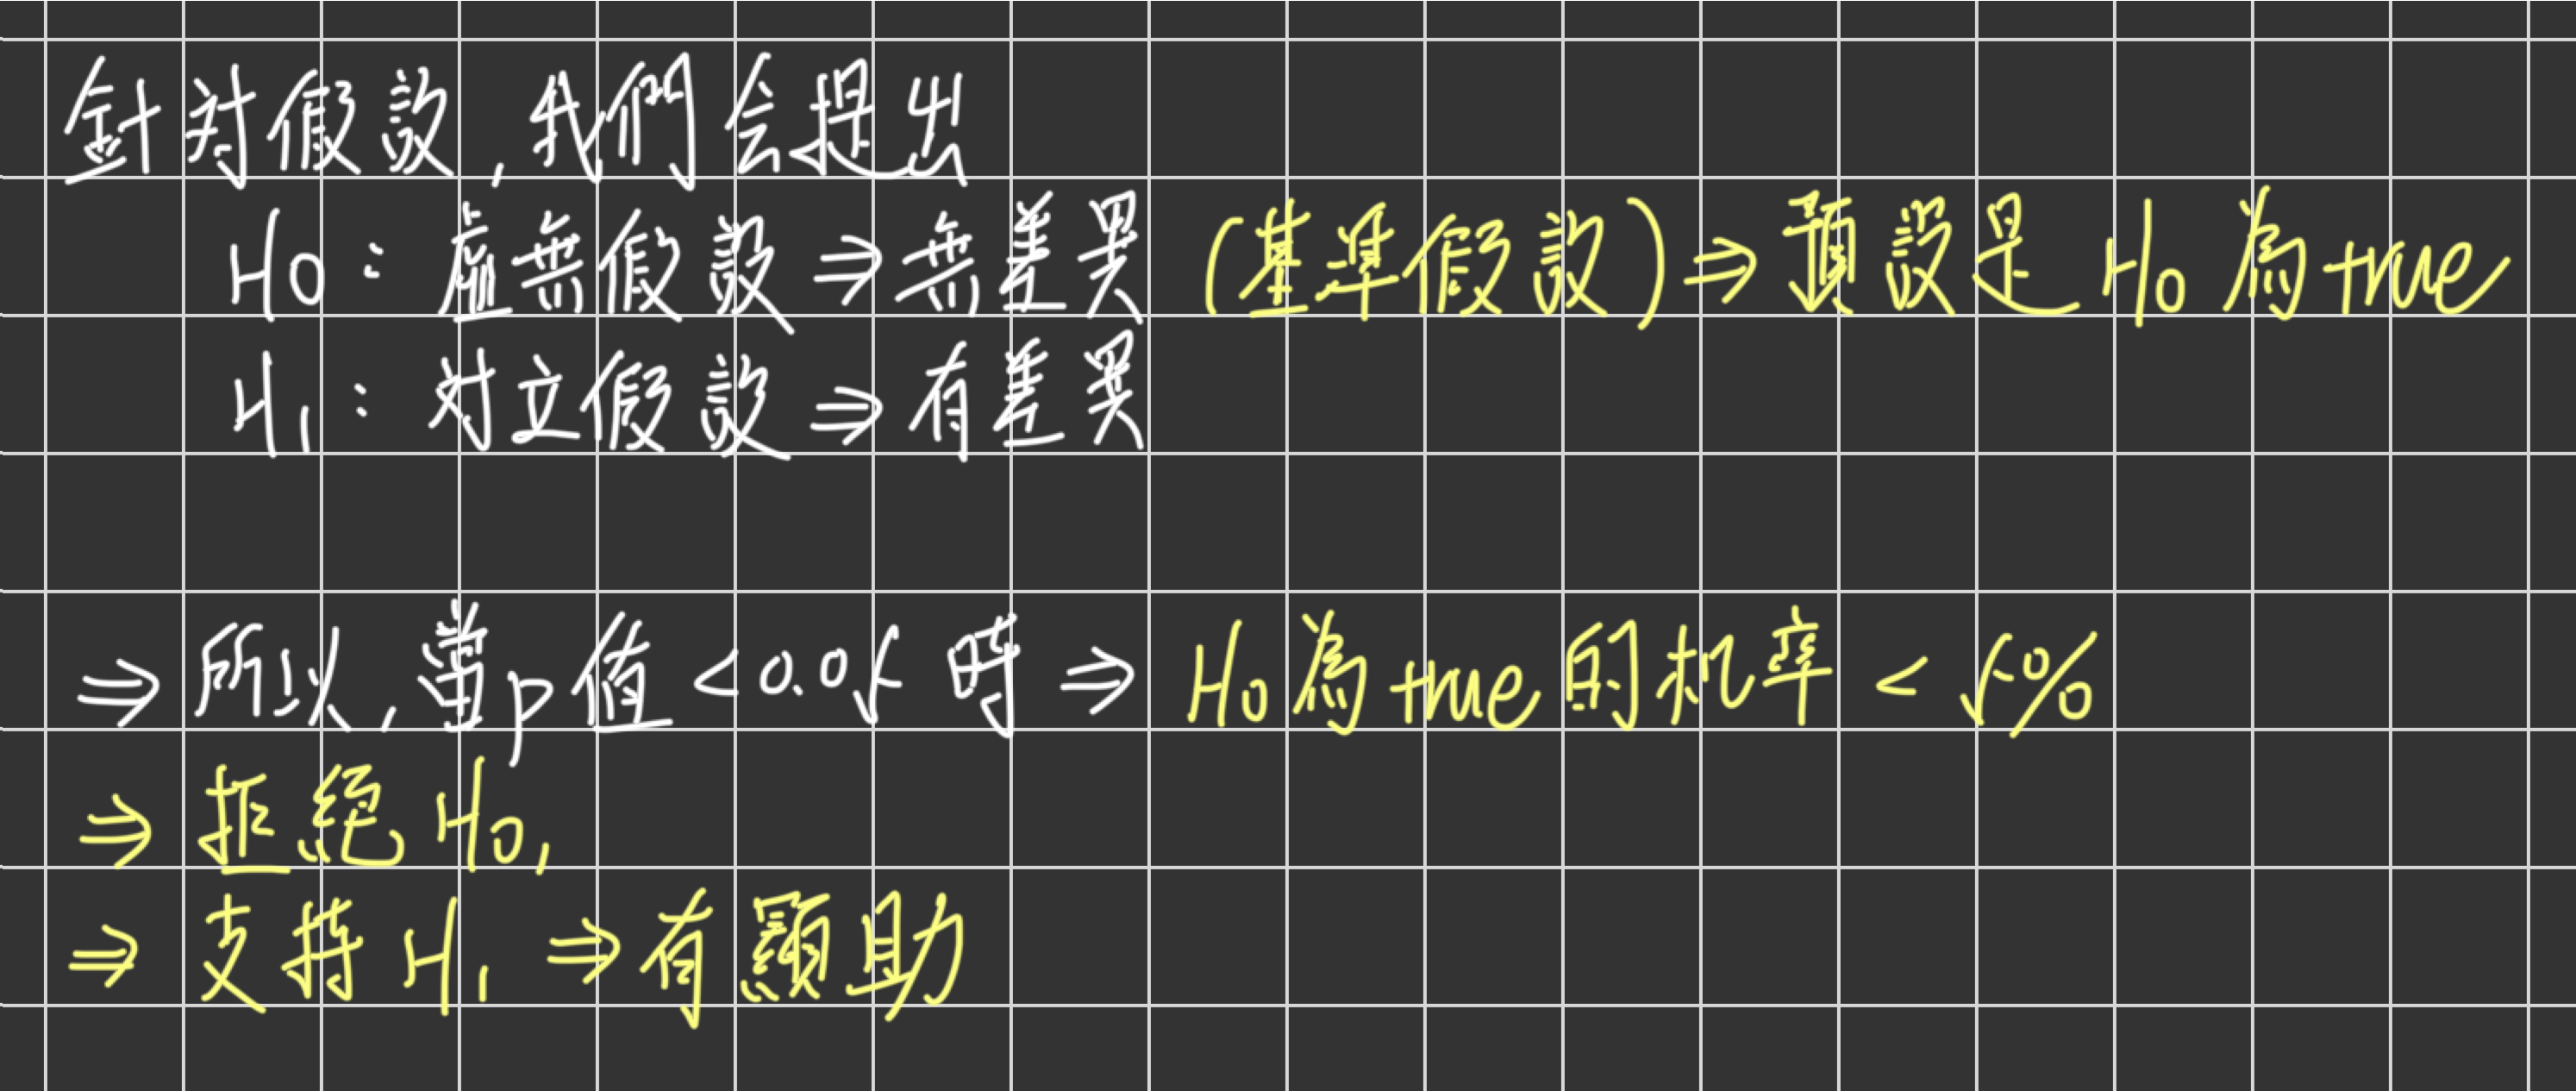 針对假設,我們会提出
H0:虛無假設⇒無差異(基準假設)⇒預設是H0為true
H1:对立假設⇒有差異
⇒所以,當p值<0.05時⇒H0為true的机率<5%
⇒拒絕H0,
⇒支持H1⇒有顯助